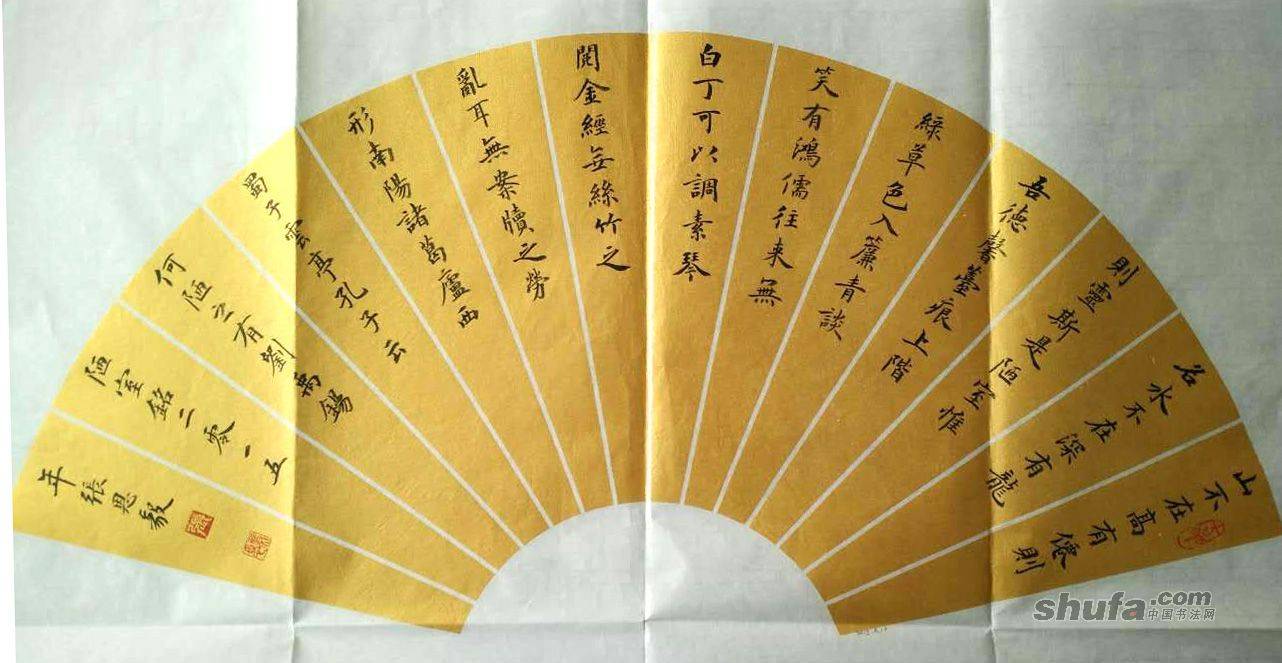 山不在高有僊則
名水不在深有龍
則靈斯是陋室惟
吾德馨薹痕上階
綠草色入簾青談
笑有鴻儒往来無
白丁可以調素琴
閱金經無絲竹之
亂耳無案牘之勞
形南陽諸葛廬西
蜀子雲亭孔子云
何陋之有劉禹錫
陋室銘二零一五
年張恩毅
shufa.com
中国书法网